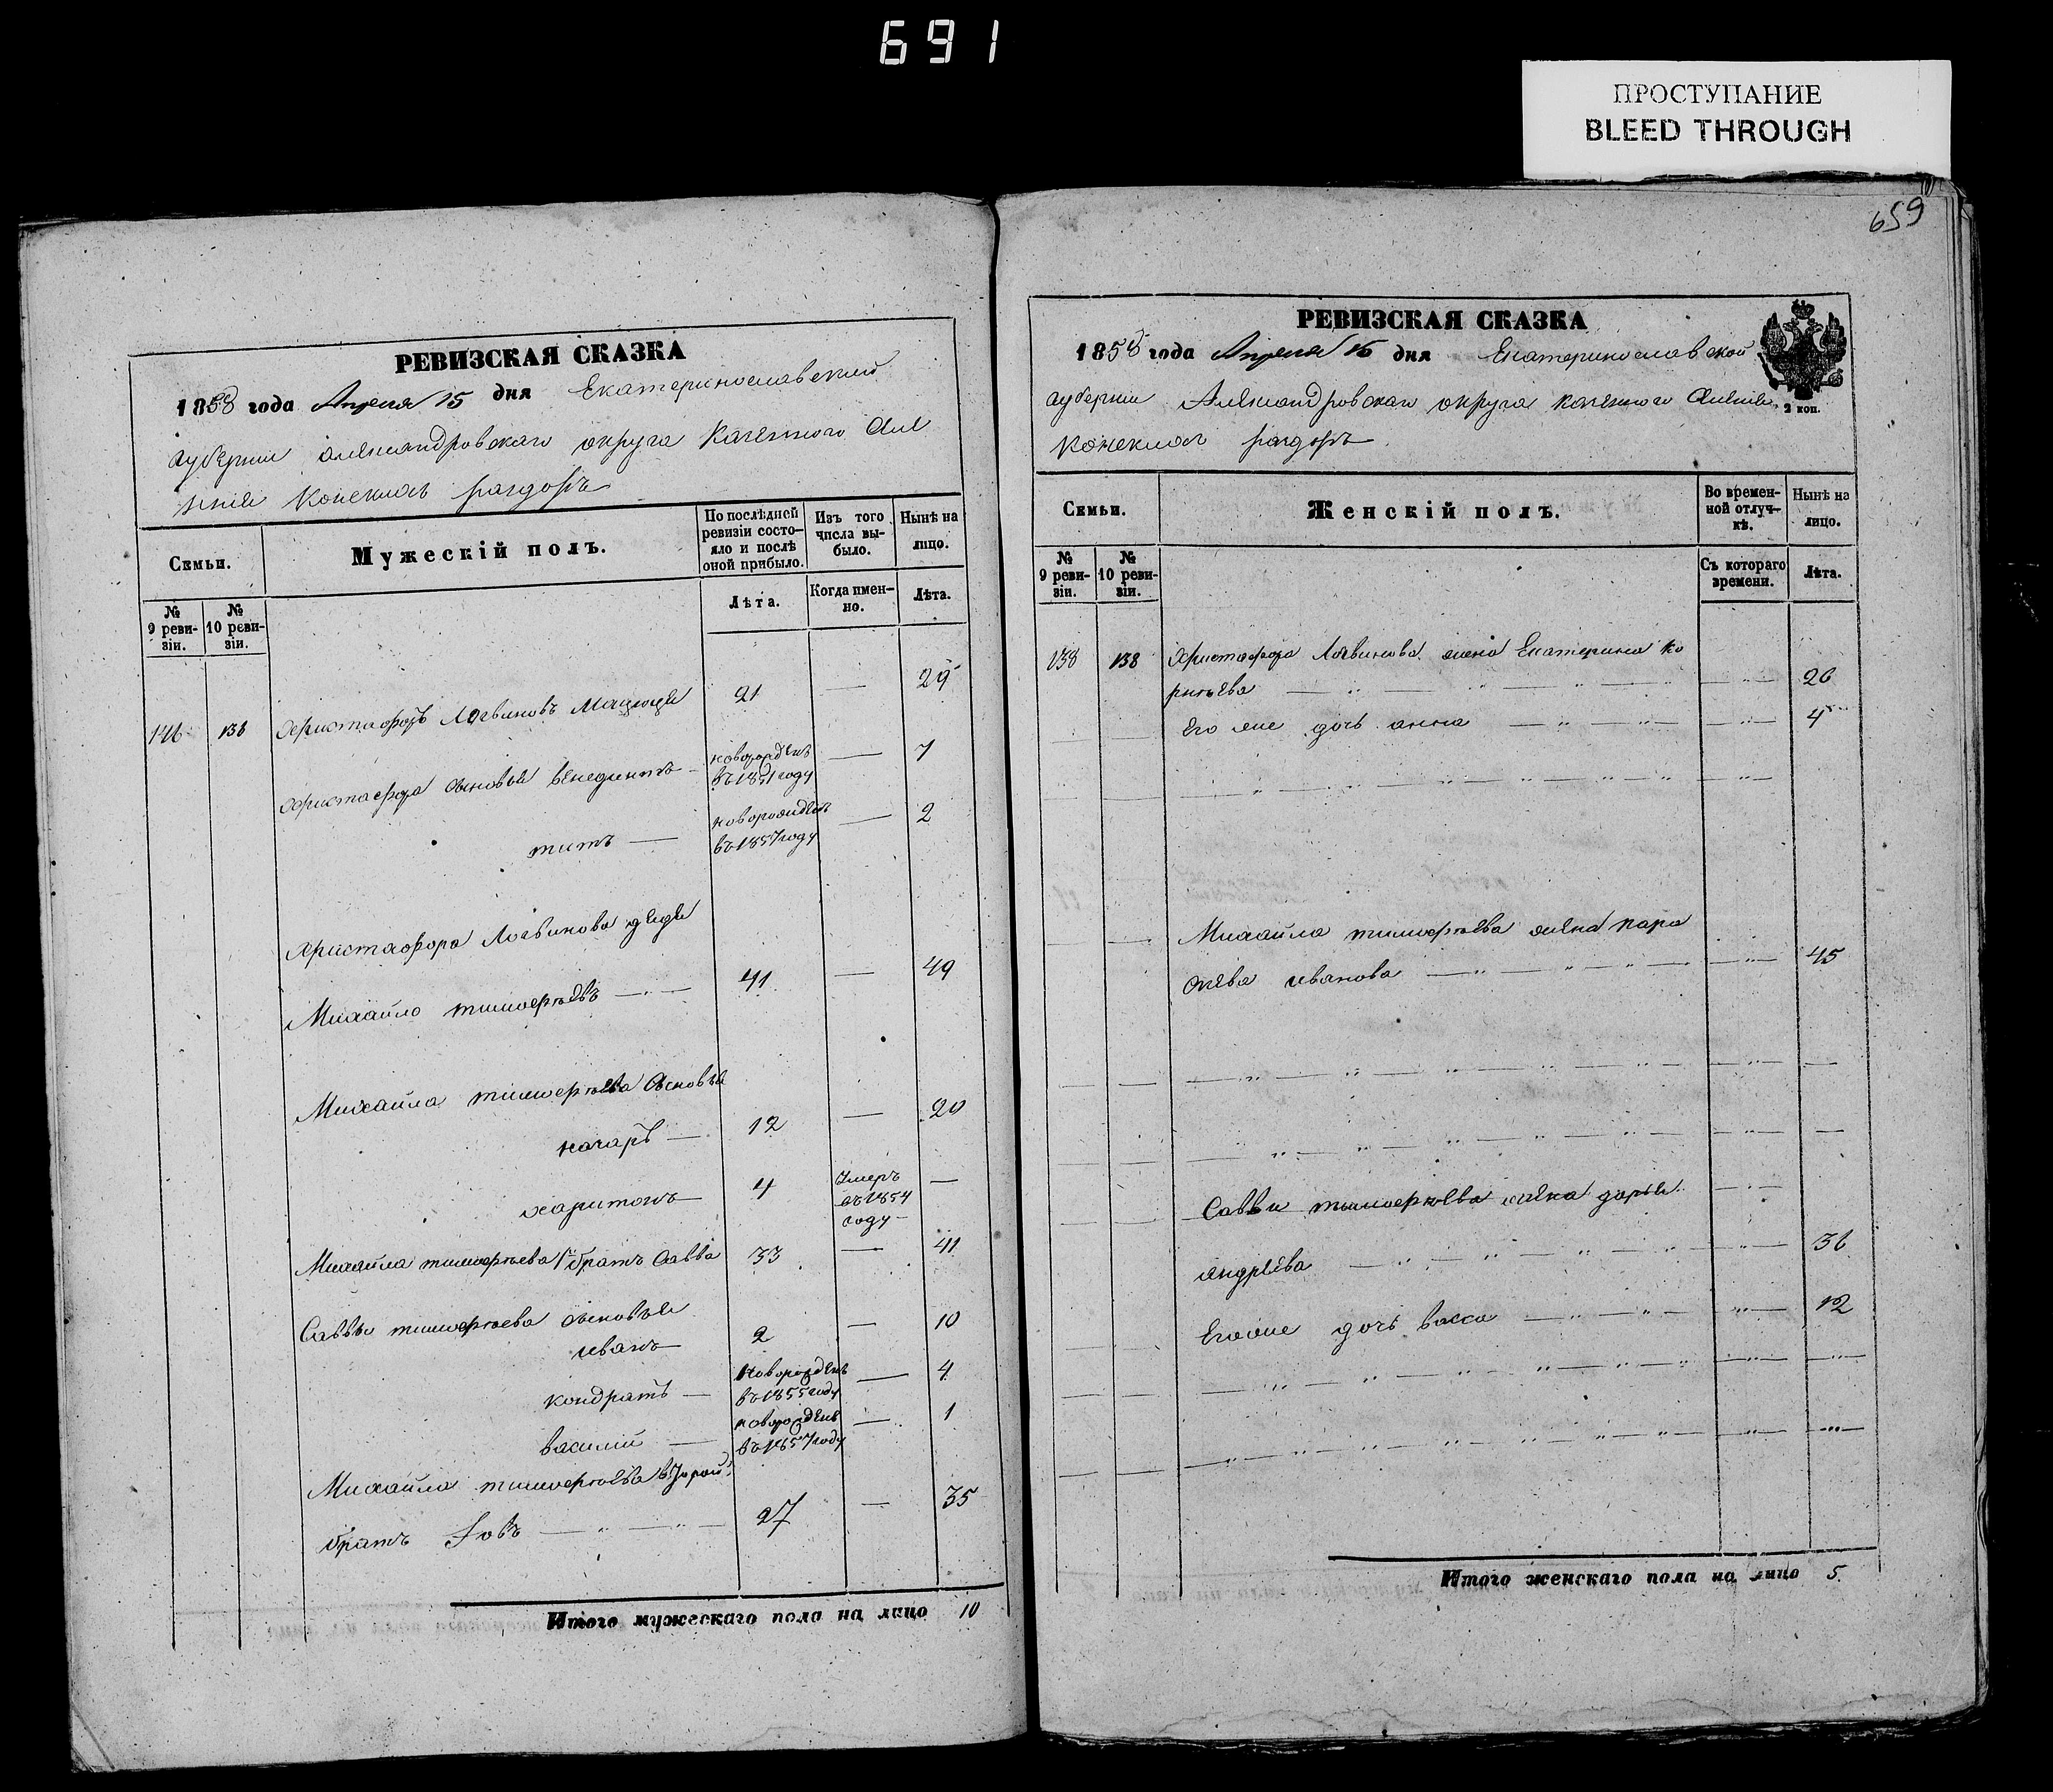 691
ПРОСТУПАНИЕ
BLEED THROUGH
659
РЕВИЗСКАЯ СКАЗКА
1858 года Апреля 15 дня Екатеринославской
губернии Александровскаго округа казенного селе
ния Конских раздоръ
Семьи.
Мужескій полъ.
По послѣдней ревизіи состо-
яло и послѣ оной прибыло.
Изъ того числа вы-
было.
Нынѣ на лицо.
№ 9 реви-
зіи.
№ 10 реви-
зіи.
Лѣта.
Когда имен-
но.
Лѣта.
146 138 Христофоръ Логвиновъ 21 — 29
Христофора сыновья Венедиктъ — новорожденъ въ 1851 году — 7
титъ — новорожденъ въ 1857 году — 2
Христофора Логвинова дядя
Михайло тимофеевъ — 41 — 49
Михайла тимофеева сыновья
назаръ — 12 — 20
харитонъ — 4 Умеръ въ 1854 году —
Михайла тимофеева 1й братъ Савва 33 — 41
Саввы тимофеева сыновья
иванъ 2 — 10
кондратъ — Новорожденъ въ 1855 году — 4
василий — новорожденъ въ 1857 году — 1
Михайла тимофеева второй
братъ Іовъ — 27 — 35
Итого мужескаго пола на лицо 10
РЕВИЗСКАЯ СКАЗКА
1858 года Апреля 15 дня Екатеринославской
губернии Александровскаго округа казенного селения
2 коп.
Конских раздоръ
Семьи.
Женскій полъ.
Во времен-
ной отлуч-
кѣ.
Нынѣ на лицо.
№ 9 реви-
зіи.
№ 10 реви-
зіи.
Съ котораго времени.
Лѣта.
138 138 Христофора Логвинова жена Екатерина Ко
рнѣева — 26
Его же дочь анна — 4
Михайла тимофеева жена пара
скева иванова — 45
Саввы тимофеева жена дарья
андреева — 36
Егоже дочь васса — 12
Итого женскаго пола на лицо 5.